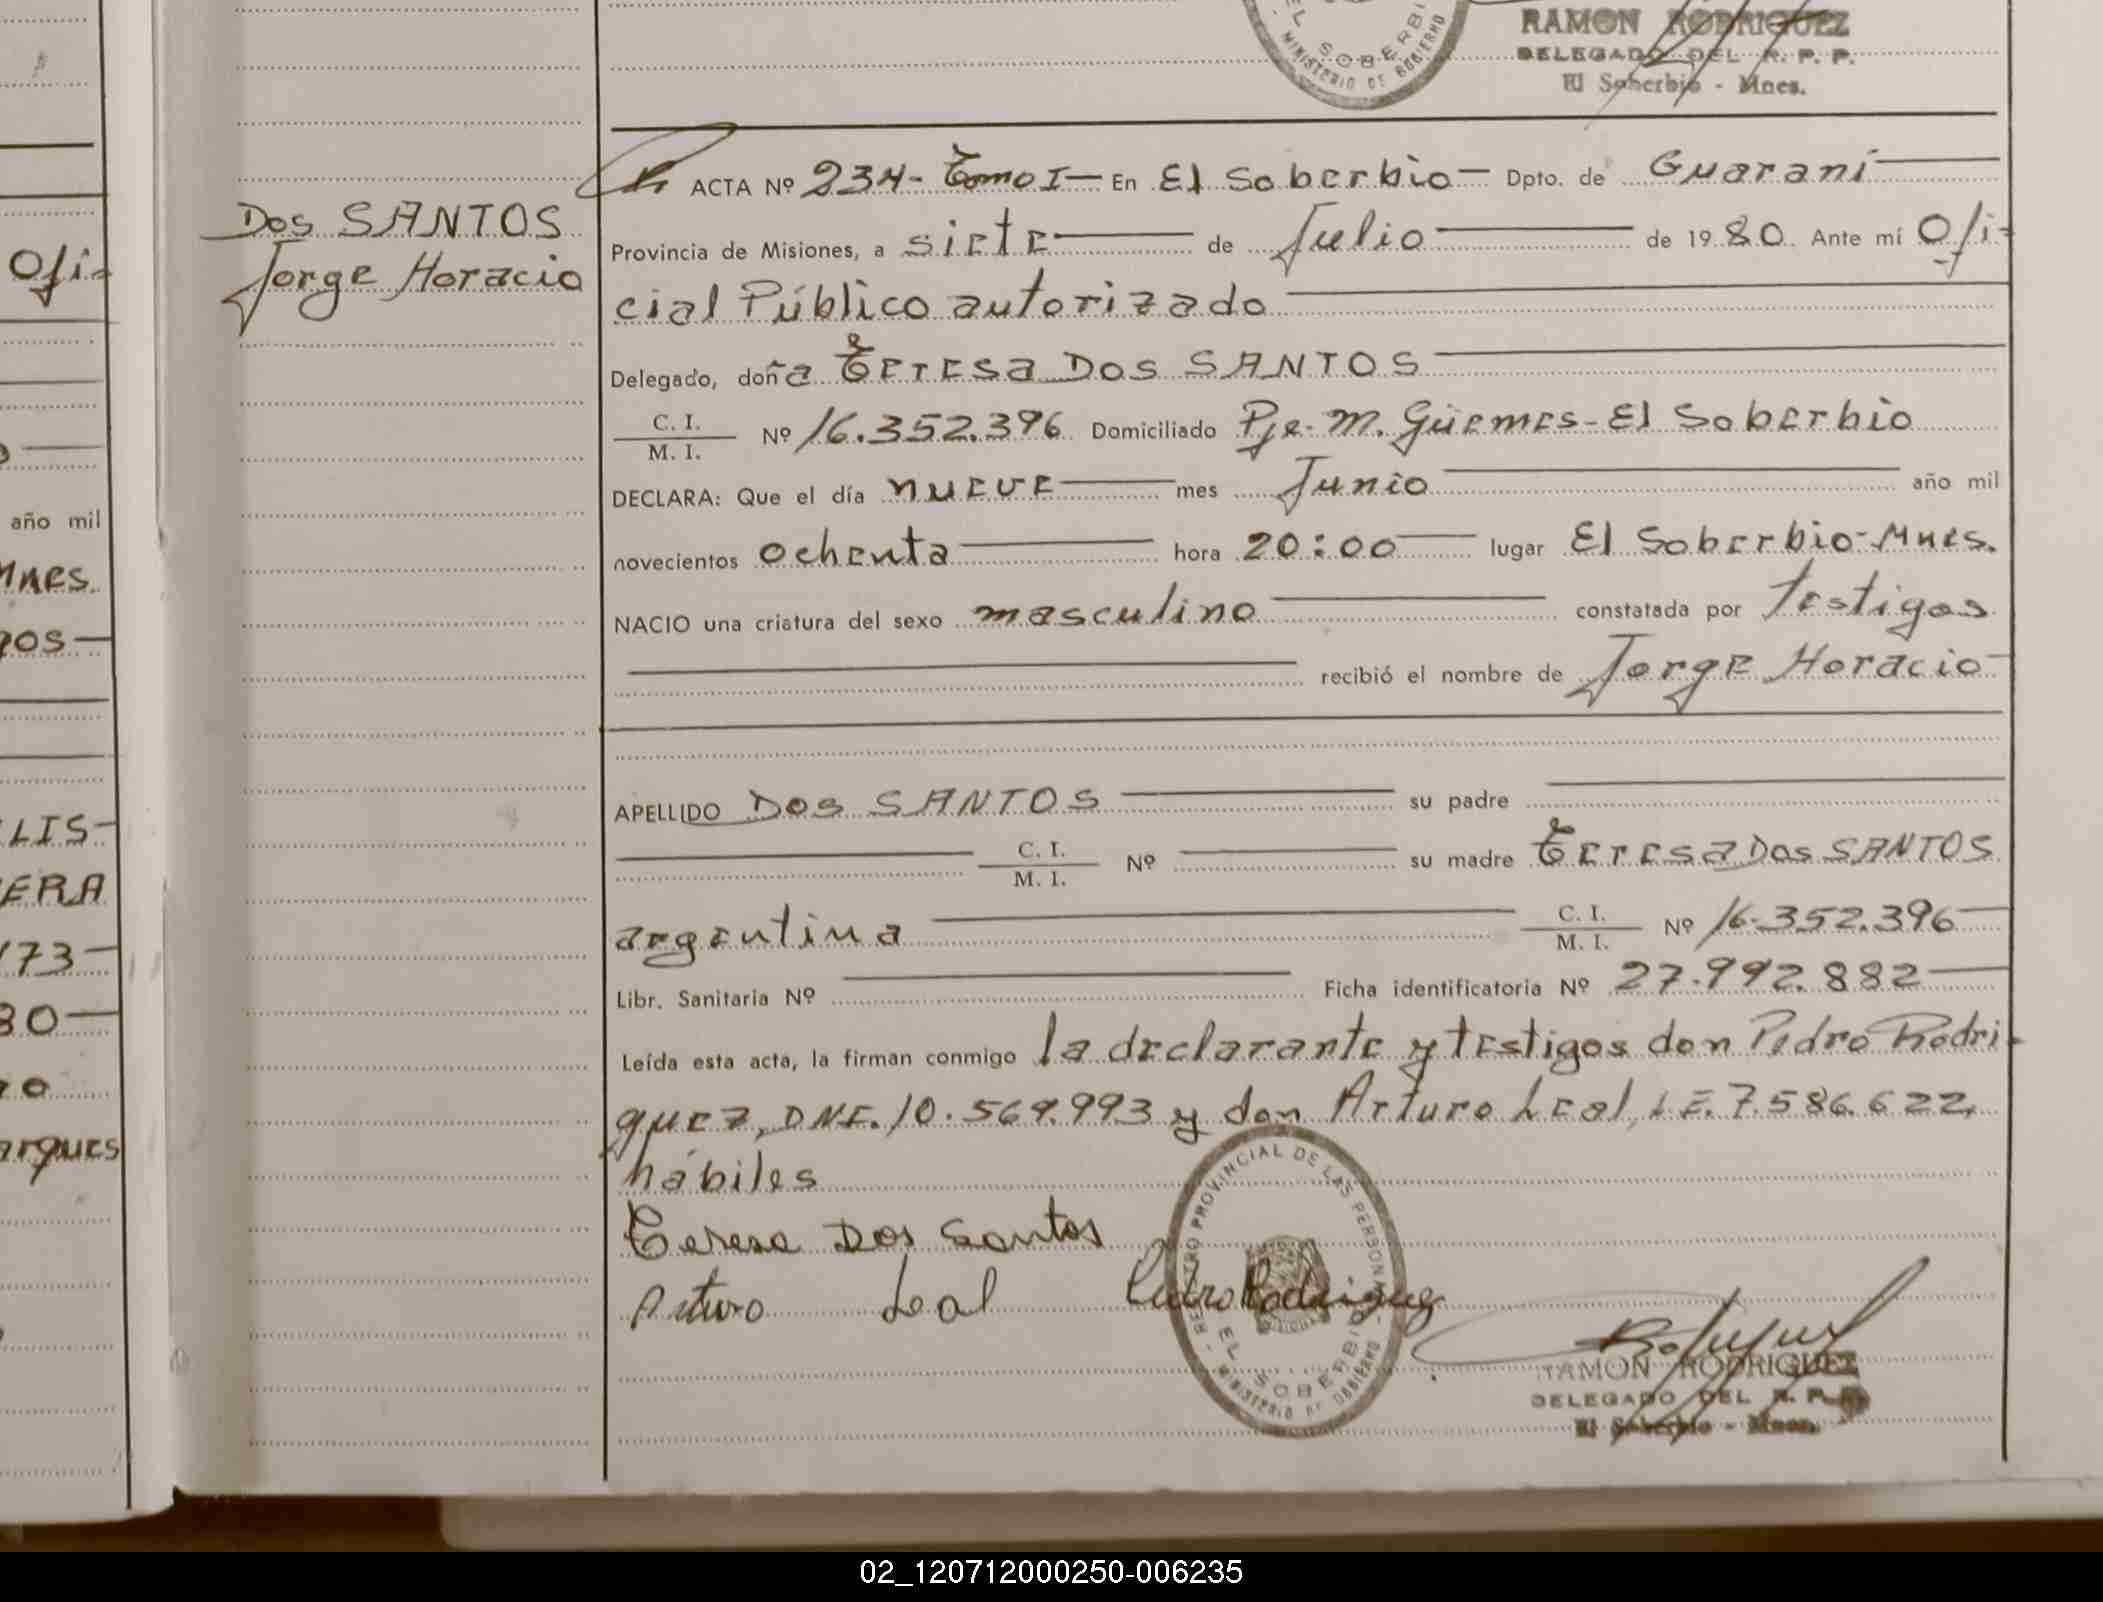 EL SOBERBI
MINISTERIO DE GOBIERNO
RAMON RODRIGUEZ
DELEGADO DEL R. P. P.
El Soberbio - Mnes.
Ofi-
año mil
Mnes.
gos
LIS-
ERA
173
80
arques
Dos SANTOS
Jorge Horacio
ACTA Nº 234- Tomo I- En El Soberbio- Dpto. de Guaraní
Provincia de Misiones, a siete de Julio de 1980. Ante mí Ofi-
cial Público autorizado
Delegado, doña Teresa Dos SANTOS
C. I.
M. I. Nº 16.352.396 Domiciliado Pje. M. Güemes-El Soberbio
DECLARA: Que el día nueve mes Junio año mil
novecientos ochenta hora 20:00 lugar El Soberbio-Mnes.
NACIO una criatura del sexo masculino constatada por testigos
recibió el nombre de Jorge Horacio
APELLIDO Dos SANTOS su padre
C. I.
M. I. Nº su madre Teresa Dos SANTOS
argentina C. I.
M. I. Nº 16.352.396
Libr. Sanitaria Nº Ficha identificatoria Nº 27.992.882
Leída esta acta, la firman conmigo la declarante y testigos don Pedro Rodri-
guez, DNI. 10.569.993 y don Arturo Leal, L.E. 7.586.622,
hábiles
Teresa Dos Santos
Arturo Leal Pedro Rodriguez
REGISTRO PROVINCIAL DE LAS PERSONAS
EL SOBERBIO
MINISTERIO DE GOBIERNO
RAMON RODRIGUEZ
DELEGADO DEL R. P. P.
El Soberbio - Mnes.
02_120712000250-006235